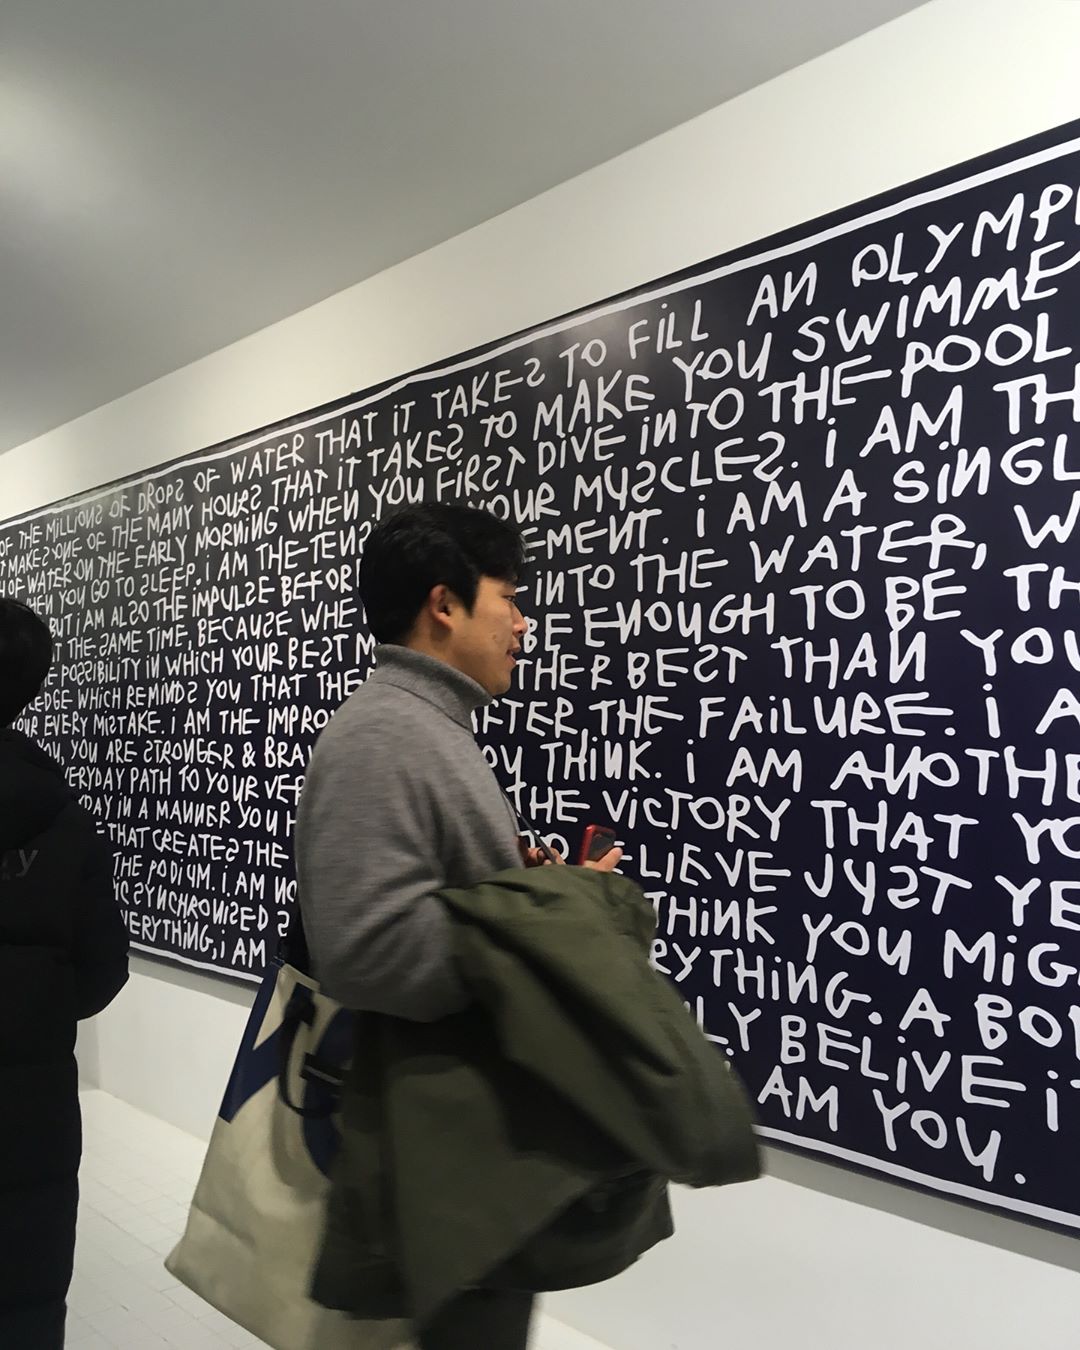 OF THE MILLIONS OF DROPS OF WATER THAT iT TAKES TO FiLL AN OLYMPI
T MAKES ONE OF THE MANY HOURS THAT iT TAKES TO MAKE YOU SWIMME
H OF WATER ON THE EARLY MORNiNG WHEN YOU FiRST DiVE iNTO THE POOL
HEN YOU GO TO SLEEP. i AM THE TENS YOUR MUSCLES. i AM TH
BUT i AM ALSO THE iMPULSE BEFOR EMENT. i AM A SiNGL
T THE SAME TiME, BECAUSE WHE iNTO THE WATER, W
E POSSiBiLiTY iN WHiCH YOUR BEST M BE ENOUGH TO BE TH
LEDGE WHiCH REMiNDS YOU THAT THE THER BEST THAN YOU
OUR EVERY MiSTAKE. i AM THE iMPRO AFTER THE FAiLURE. i A
YOU, YOU ARE STRONGER & BRAV OU THiNK. i AM ANOTHE
VERYDAY PATH TO YOUR VER THE ViCTORY THAT YO
YDAY iN A MANNER YOU H TO ELiEVE JUST YE
THAT CREATES THE THiNK YOU MiG
THE PODiUM. i AM NO RYTHiNG. A BO
iC SYNCHRONiSED S LY BELiVE i
VERYTHiNG, i AM AM YOU.
ry